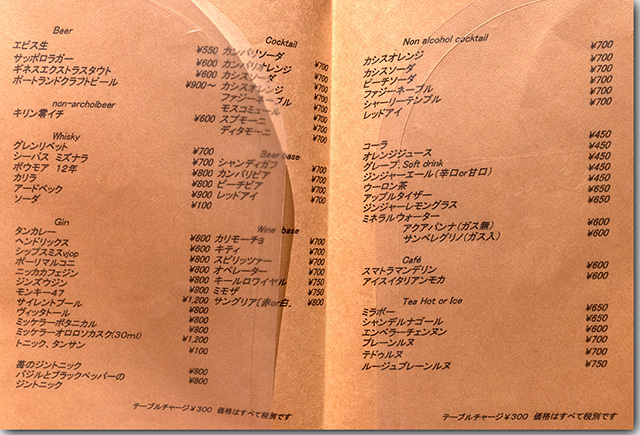 Beer
エビス生 ¥550
サッポロラガー ¥600
ギネスエクストラスタウト ¥600
ポートランドクラフトビール ¥900～
non-archoibeer
キリン零イチ ¥600
Whisky
グレンリベット ¥700
シーバス ミズナラ ¥700
ボウモア 12年 ¥800
カリラ ¥800
アードベック ¥900
ソーダ ¥100
Gin
タンカレー ¥600
ヘンドリックス ¥800
シップスミスvjop ¥800
ボーリマルコニ ¥800
ニッカカフェジン ¥800
ジンズウジン ¥800
モンキー47 ¥1,200
サイレントプール ¥800
ヴィッタトール ¥800
ミッケラーボタニカル ¥800
ミッケラーオロロソカスク(30ml) ¥1,200
トニック、タンサン ¥100
苺のジントニック ¥800
バジルとブラックペッパーの
ジントニック ¥800
Cocktail
カンパリソーダ ¥700
カンパリオレンジ ¥700
カシスソーダ ¥700
カシスオレンジ ¥700
ファジーネーブル ¥700
モスコミュール ¥700
スプモーニ ¥700
ディタモーニ ¥700
Beer base
シャンディガフ ¥700
カンパリビア ¥700
ピーチビア ¥700
レッドアイ ¥700
Wine base
カリモーチョ ¥700
キティ ¥700
スピリッツァー ¥700
オペレーター ¥700
キールロワイヤル ¥750
ミモザ ¥750
サングリア(赤or白 ¥800
テーブルチャージ¥300 価格はすべて税別です
Non alcohol cocktail
カシスオレンジ ¥700
カシスソーダ ¥700
ピーチソーダ ¥700
ファジーネーブル ¥700
シャーリーテンプル ¥700
レッドアイ
Soft drink
コーラ ¥450
オレンジジュース ¥450
グレープ ¥450
ジンジャーエール(辛口or甘口) ¥450
ウーロン茶 ¥650
アップルタイザー ¥650
ジンジャーレモングラス
ミネラルウォーター
アクアパンナ(ガス無) ¥600
サンペレグリノ(ガス入) ¥600
Café
スマトラマンデリン ¥600
アイスイタリアンモカ ¥600
Tea Hot or Ice
ミラボー ¥650
シャンデルナゴール ¥650
エンペラーチェンヌン ¥600
プレーンルヌ ¥700
テドゥルヌ ¥700
ルージュプレーンルヌ ¥750
テーブルチャージ¥300 価格はすべて税別です